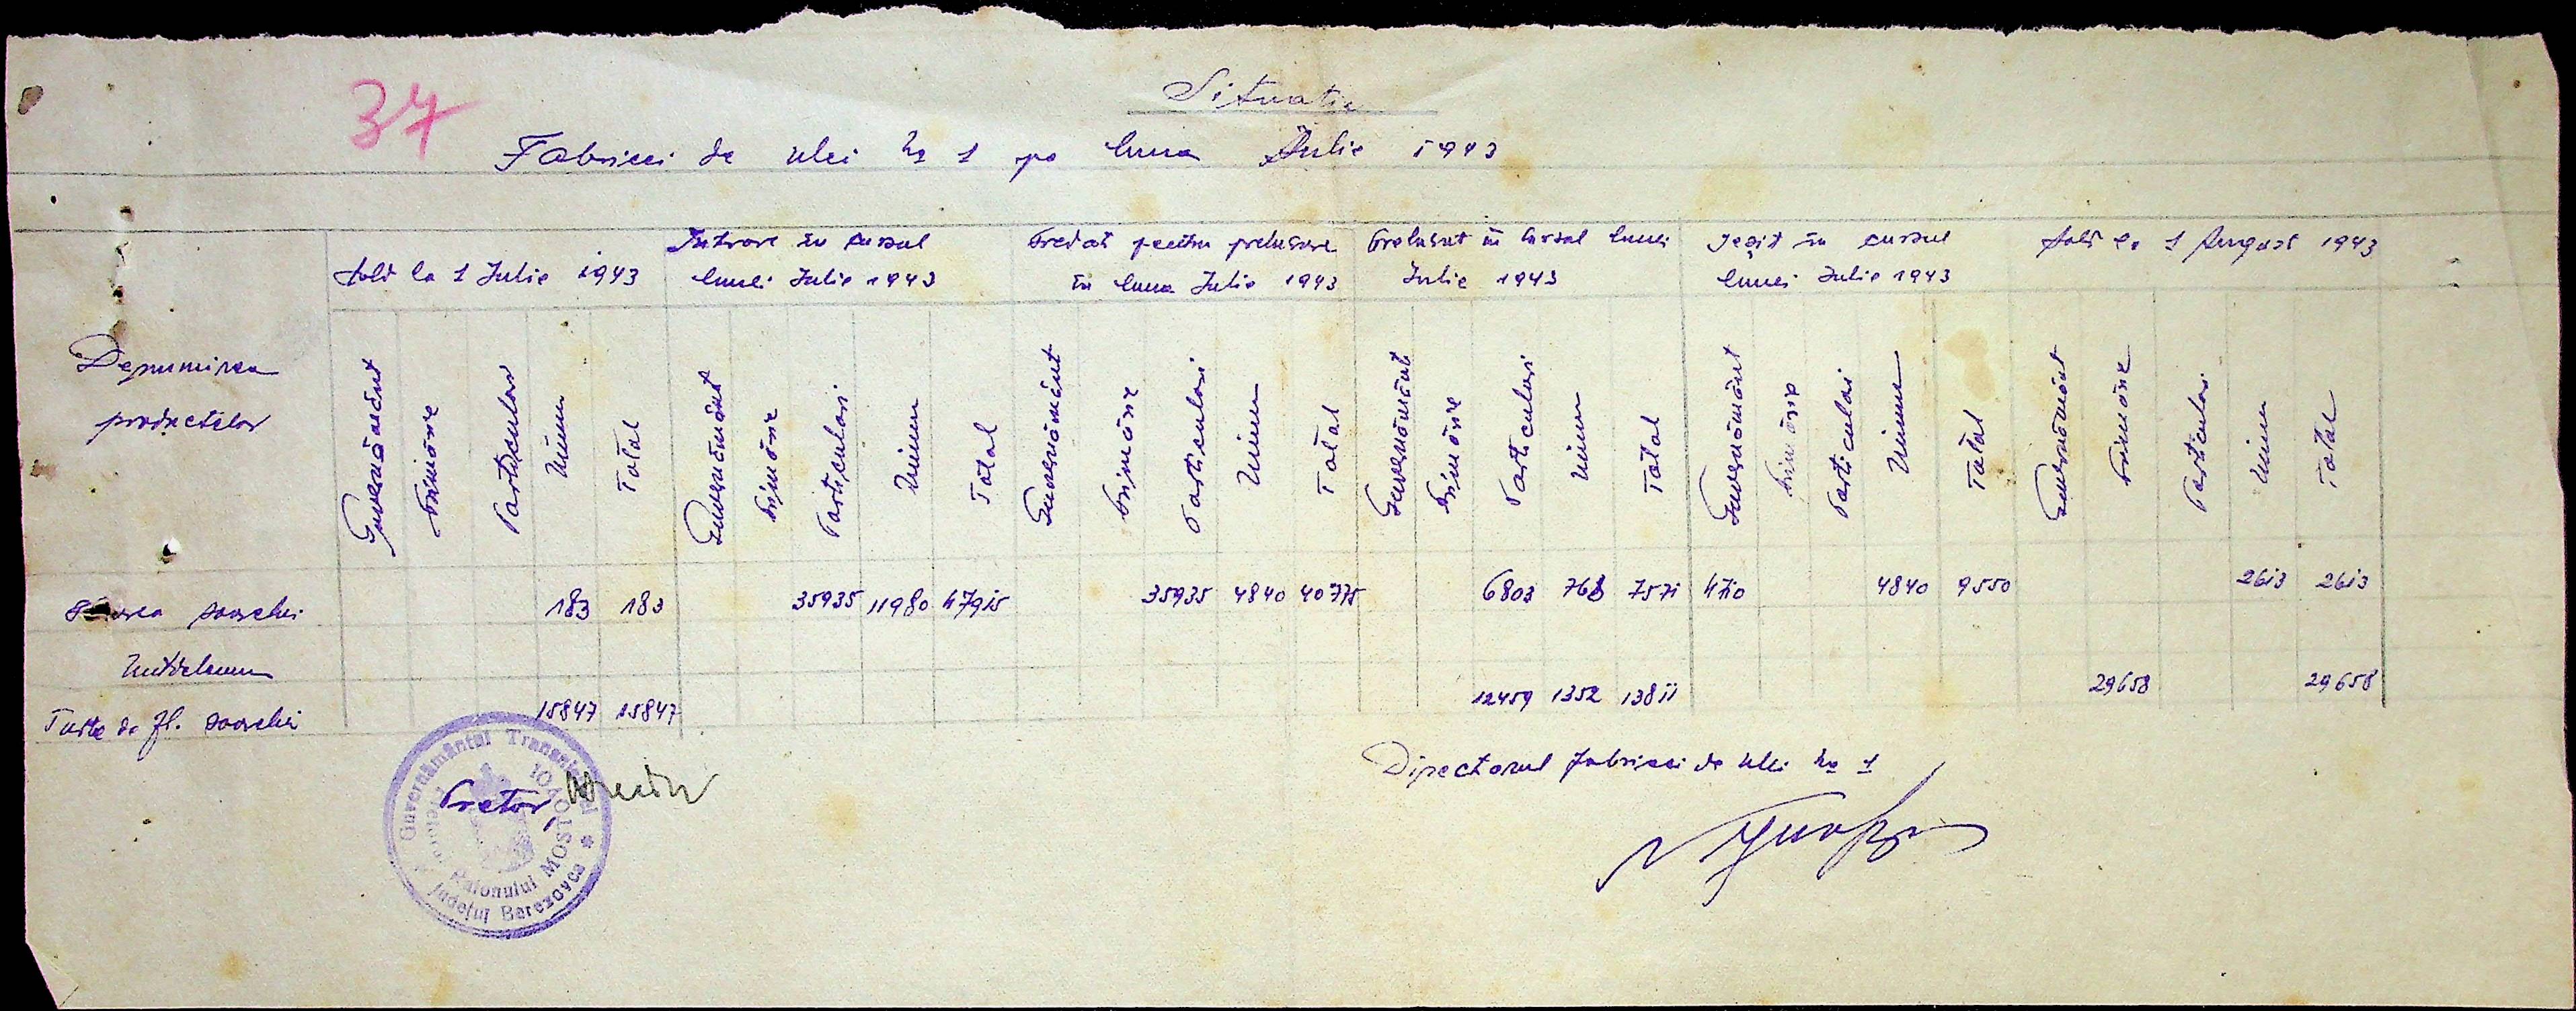 37
Situatia
Fabricei de ulei № 1 pe luna Iulie 1943
Denumirea productelor
Sold la 1 Iulie 1943
Intrare in cursul lunei Iulie 1943
Predat pentru prelucrare in luna Iulie 1943
Prelucrat in cursul lunei Iulie 1943
Ieșit in cursul lunei Iulie 1943
Sold la 1 August 1943
Guvernământ Primărie Particulari Uium Total
Guvernământ Primărie Particulari Uium Total
Guvernământ Primărie Particulari Uium Total
Guvernământ Primărie Particulari Uium Total
Guvernământ Primărie Particulari Uium Total
Guvernământ Primărie Particulari Uium Total
Floarea soarelui 183 183 35935 11980 47915 35935 4840 40775 6803 768 7571 4710 4840 9550 2613 2613
Untdelemn
Turte de fl. soarelui 15847 15847 12459 1352 13811 29658 29658
Pretor,
Directorul fabricei de ulei № 1
Guvernământul Transnistriei
Pretura Raionului MOSTOVOI
Județul Berezovca